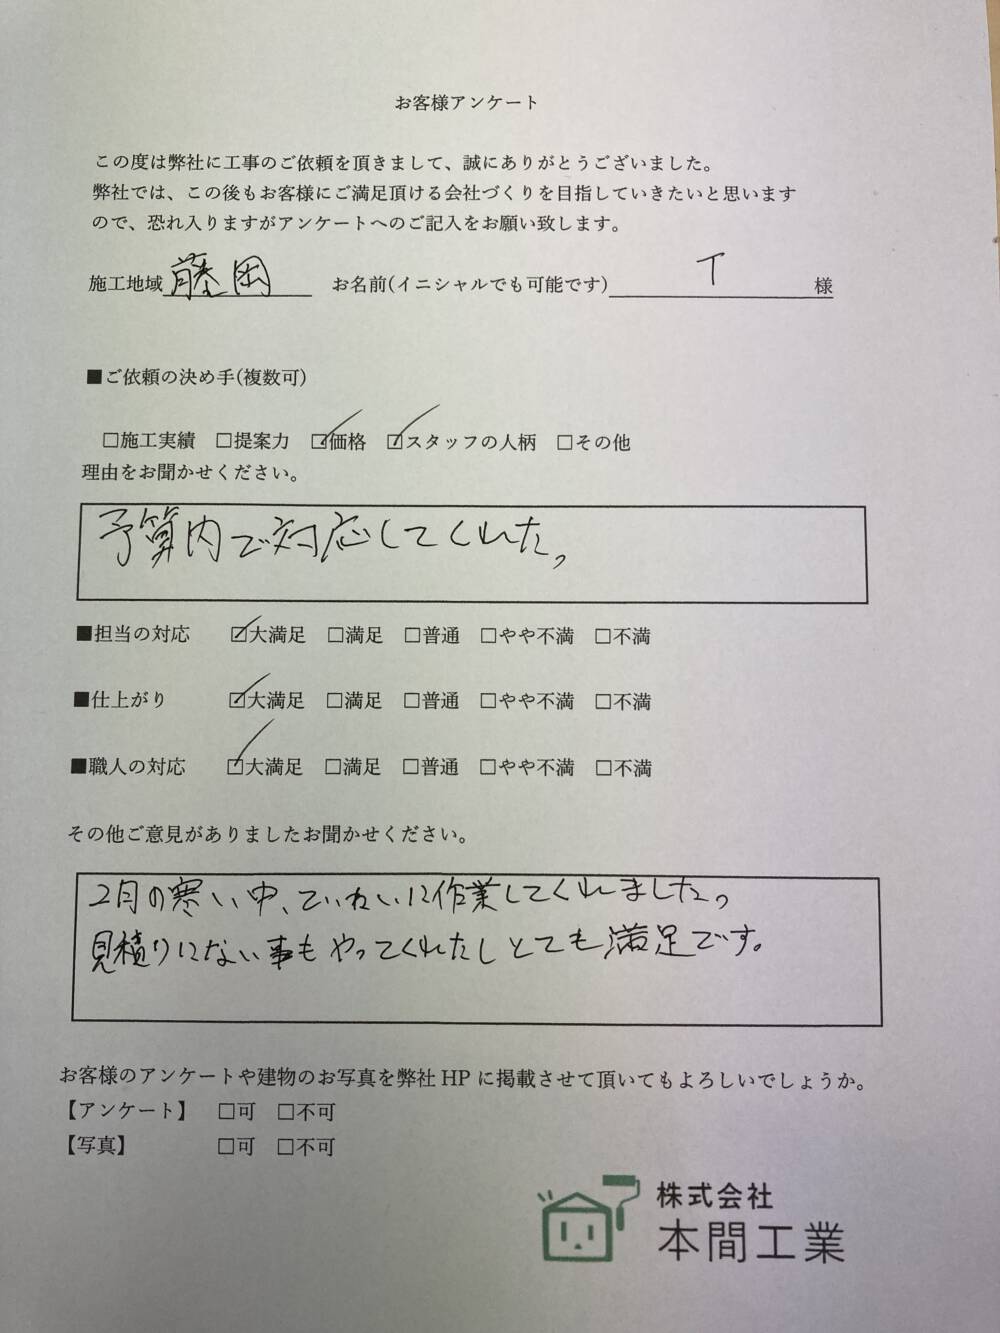 お客様アンケート
この度は弊社に工事のご依頼を頂きまして、誠にありがとうございました。
弊社では、この後もお客様にご満足頂ける会社づくりを目指していきたいと思います
ので、恐れ入りますがアンケートへのご記入をお願い致します。
施工地域 藤岡 お名前(イニシャルでも可能です) T 様
■ご依頼の決め手(複数可)
□施工実績 □提案力 ☑価格 ☑スタッフの人柄 □その他
理由をお聞かせください。
予算内で対応してくれた。
■担当の対応 ☑大満足 □満足 □普通 □やや不満 □不満
■仕上がり ☑大満足 □満足 □普通 □やや不満 □不満
■職人の対応 ☑大満足 □満足 □普通 □やや不満 □不満
その他ご意見がありましたお聞かせください。
2月の寒い中、ていねいに作業してくれました。
見積りにない事もやってくれたしとても満足です。
お客様のアンケートや建物のお写真を弊社 HP に掲載させて頂いてもよろしいでしょうか。
【アンケート】 □可 □不可
【写真】 □可 □不可
株式会社
本間工業